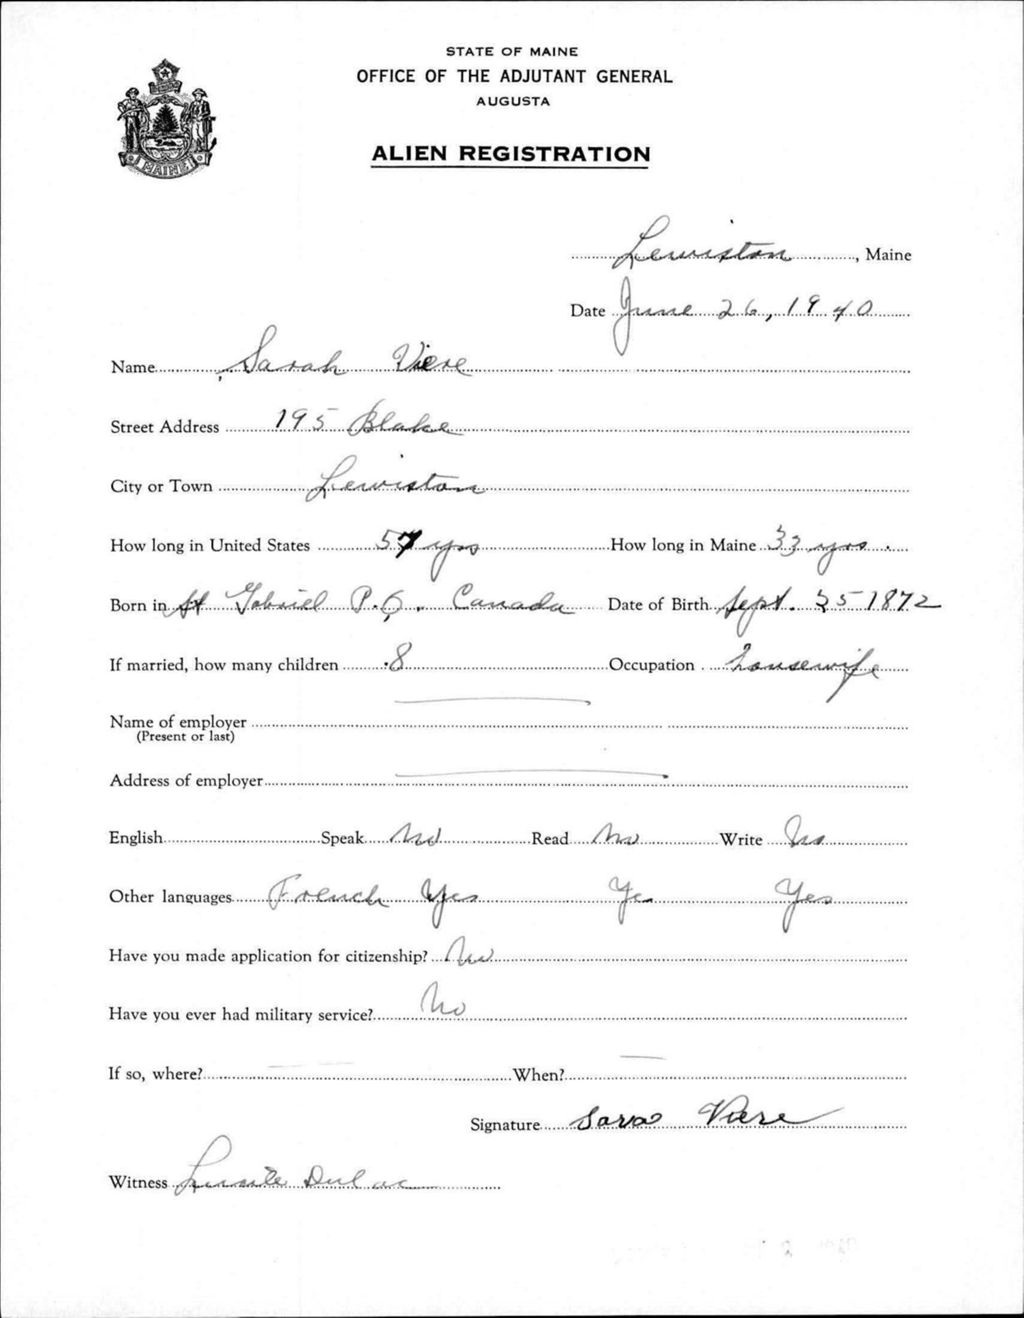 STATE OF MAINE
OFFICE OF THE ADJUTANT GENERAL
AUGUSTA
MAINE
ALIEN REGISTRATION
Lewiston, Maine
Date June 26, 1940
Name Sarah Viere
Street Address 195 Blake
City or Town Lewiston
How long in United States 57 yrs How long in Maine 33 yrs.
Born in St Gabriel P.Q. Canada Date of Birth Sept. 25 1872
If married, how many children 8 Occupation housewife
Name of employer
(Present or last)
Address of employer
English Speak No Read No Write No
Other languages French Yes Yes Yes
Have you made application for citizenship? No
Have you ever had military service? No
If so, where? When?
Signature Sara Viere
Witness Dulac